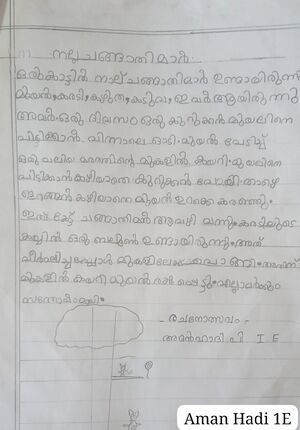 നല്ല ചങ്ങാതിമാർ
ഒരു കാട്ടിൽ നാല് ചങ്ങാതിമാർ ഉണ്ടായിരുന്നു
മുയൽ, കരടി, കഴുത, കടുവ, ഇവർ ആയിരുന്നു
അവർ. ഒരു ദിവസം ഒരു കുറുക്കൻ മുയലിനെ
പിടിക്കാൻ പിന്നാലെ ഓടി. മുയൽ പേടിച്ച്
ഒരു വലിയ മരത്തിന്റെ മുകളിൽ കയറി. മുയലിനെ
പിടിക്കാൻ കഴിയാതെ കുറുക്കൻ പോയി. താഴെ
ഇറങ്ങാൻ കഴിയാതെ മുയൽ ഉറക്കെ കരഞ്ഞു.
ചങ്ങാതിമാർ ആവഴി വന്നു. കരടിയുടെ
കയ്യിൽ ഒരു ബലൂൺ ഉണ്ടായിരുന്നു. അത്
വീർപ്പിച്ചപ്പോൾ മുകളിലേക്ക്
മുകളിൽ കയറി മുയൽ രക്ഷപ്പെട്ടു. എല്ലാവർക്കും
സന്തോഷമായി.
- രചനോത്സവം -
അമൻഹാദി പി I E
Aman Hadi 1E